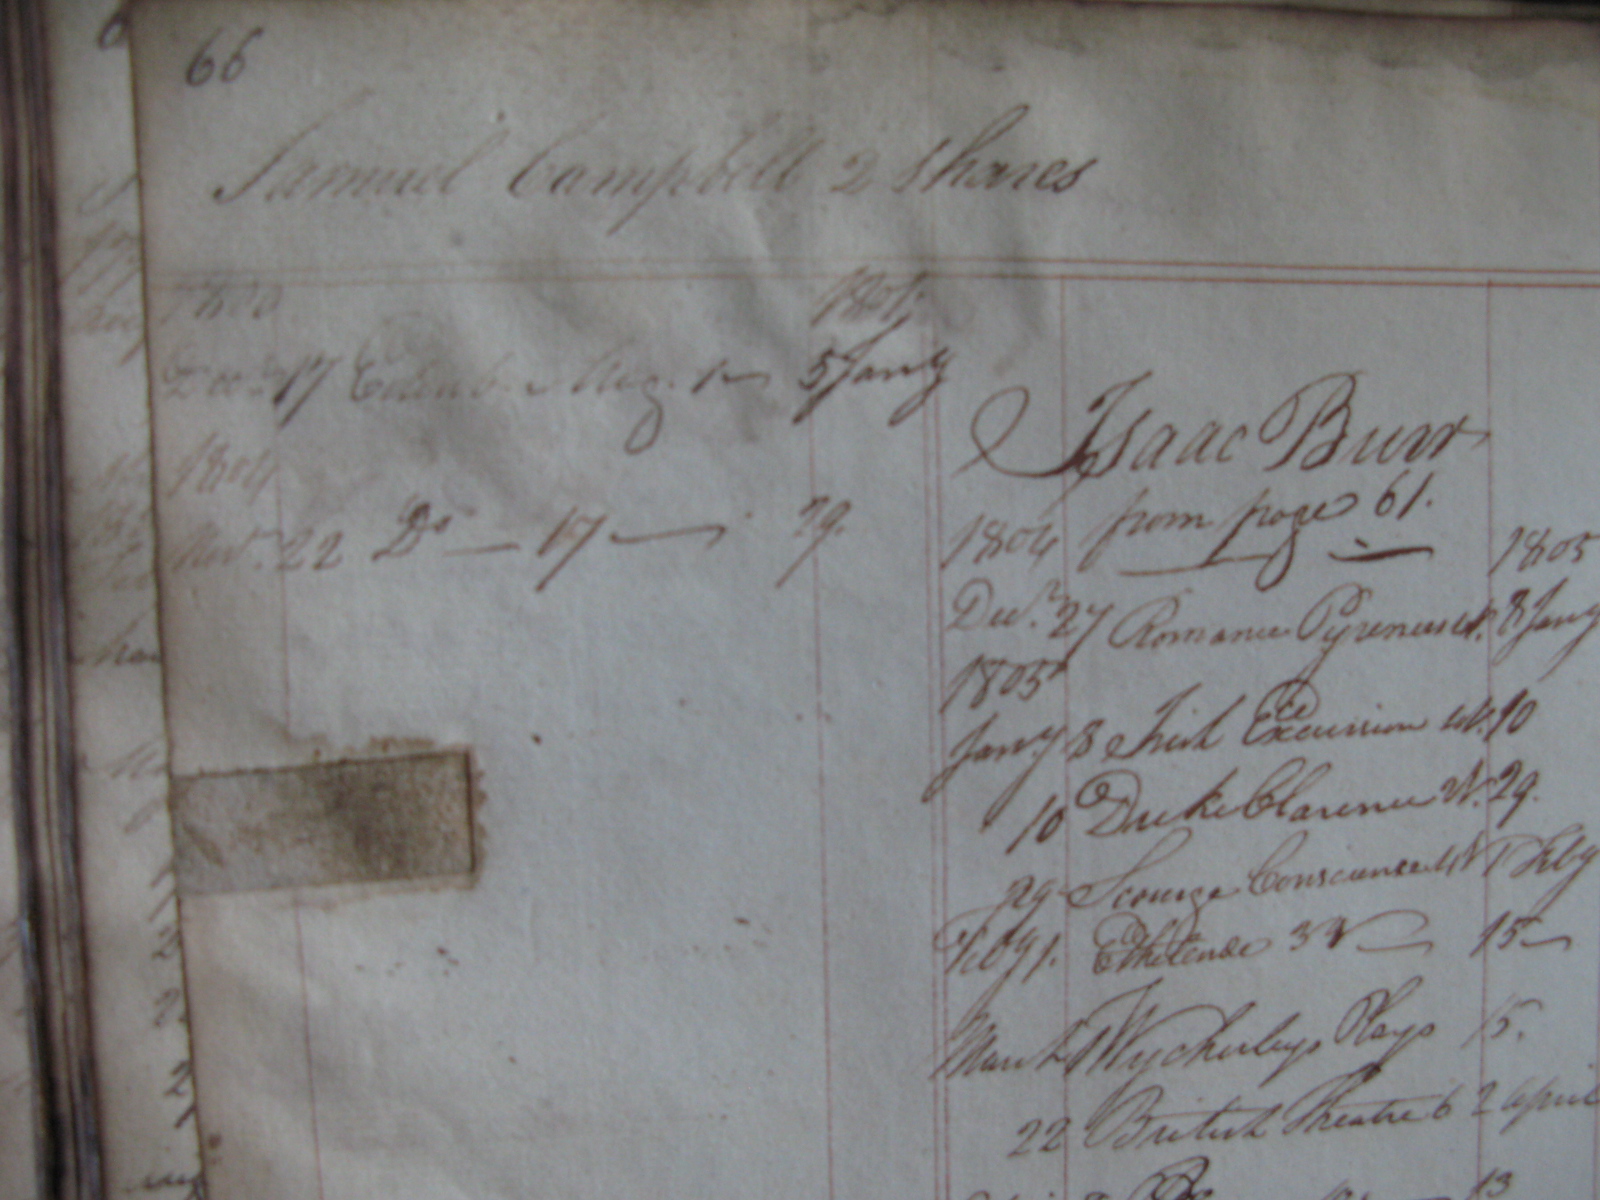 66
Samuel Campbell 2 shares
1800 1801
Decr 17 Edinb. Mag. 1 5 Jany
1804
Novr. 22 Do — 17 — 29.
Isaac Burr
from page 61.
1804 1805
Decr. 27 Romance Pyrenees 8 Jany
1805
Jany 8 Irish Excursion 10
10 Duke Clarence 29.
29 Scourge Conscience 1 Feby
Feby 1. Ethelinde 3 V 15
March 1 Wycherleys Plays 15.
22 British Theatre 6 2 April
13